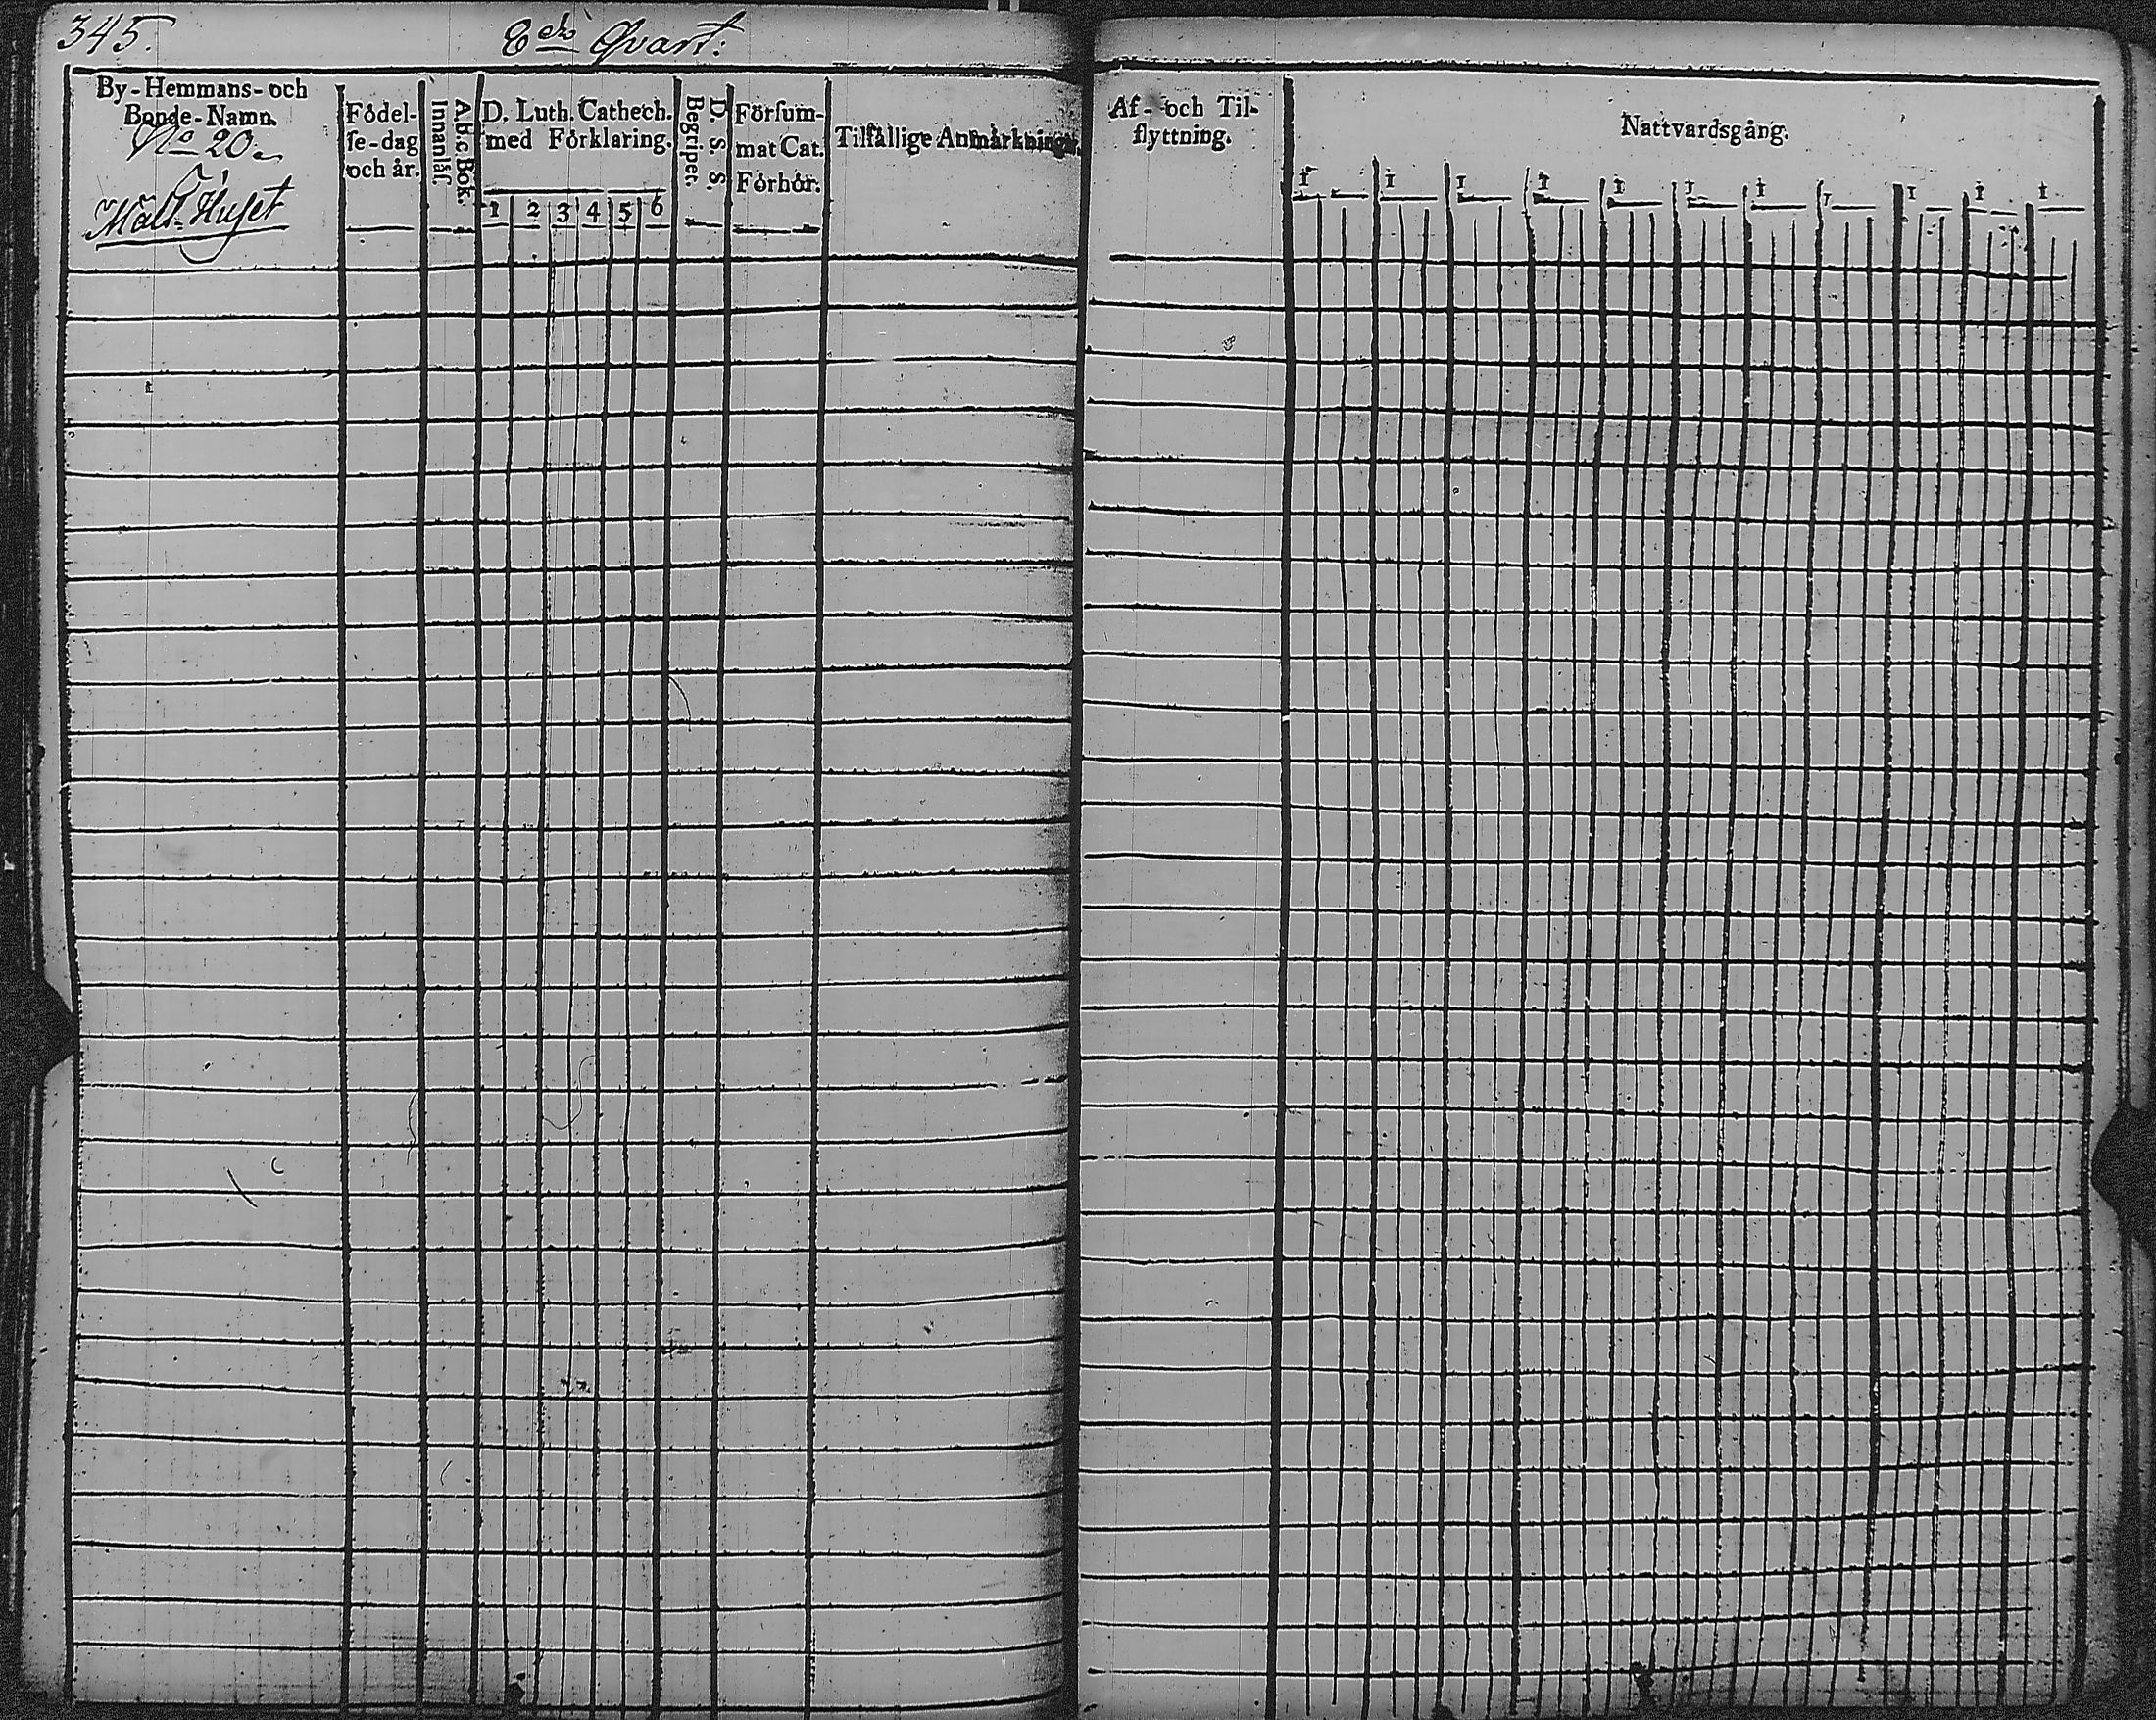 345.
8de Qvart:
By-Hemmans- och
Bonde-Namn.
No 20.
Mält-Huset
Födel-
se-dag
och år.
A b c Bok.
Innanläs.
D. Luth. Cathech.
med Förklaring.
1 2 3 4 5 6
D. S. S.
Begriper.
Försum-
mat Cat.
Förhör.
Tilfällige Anmärkningar.
Af- och Til-
flyttning.
Nattvardsgång.
1 1 1 1 1 1 1 1 1 1 1